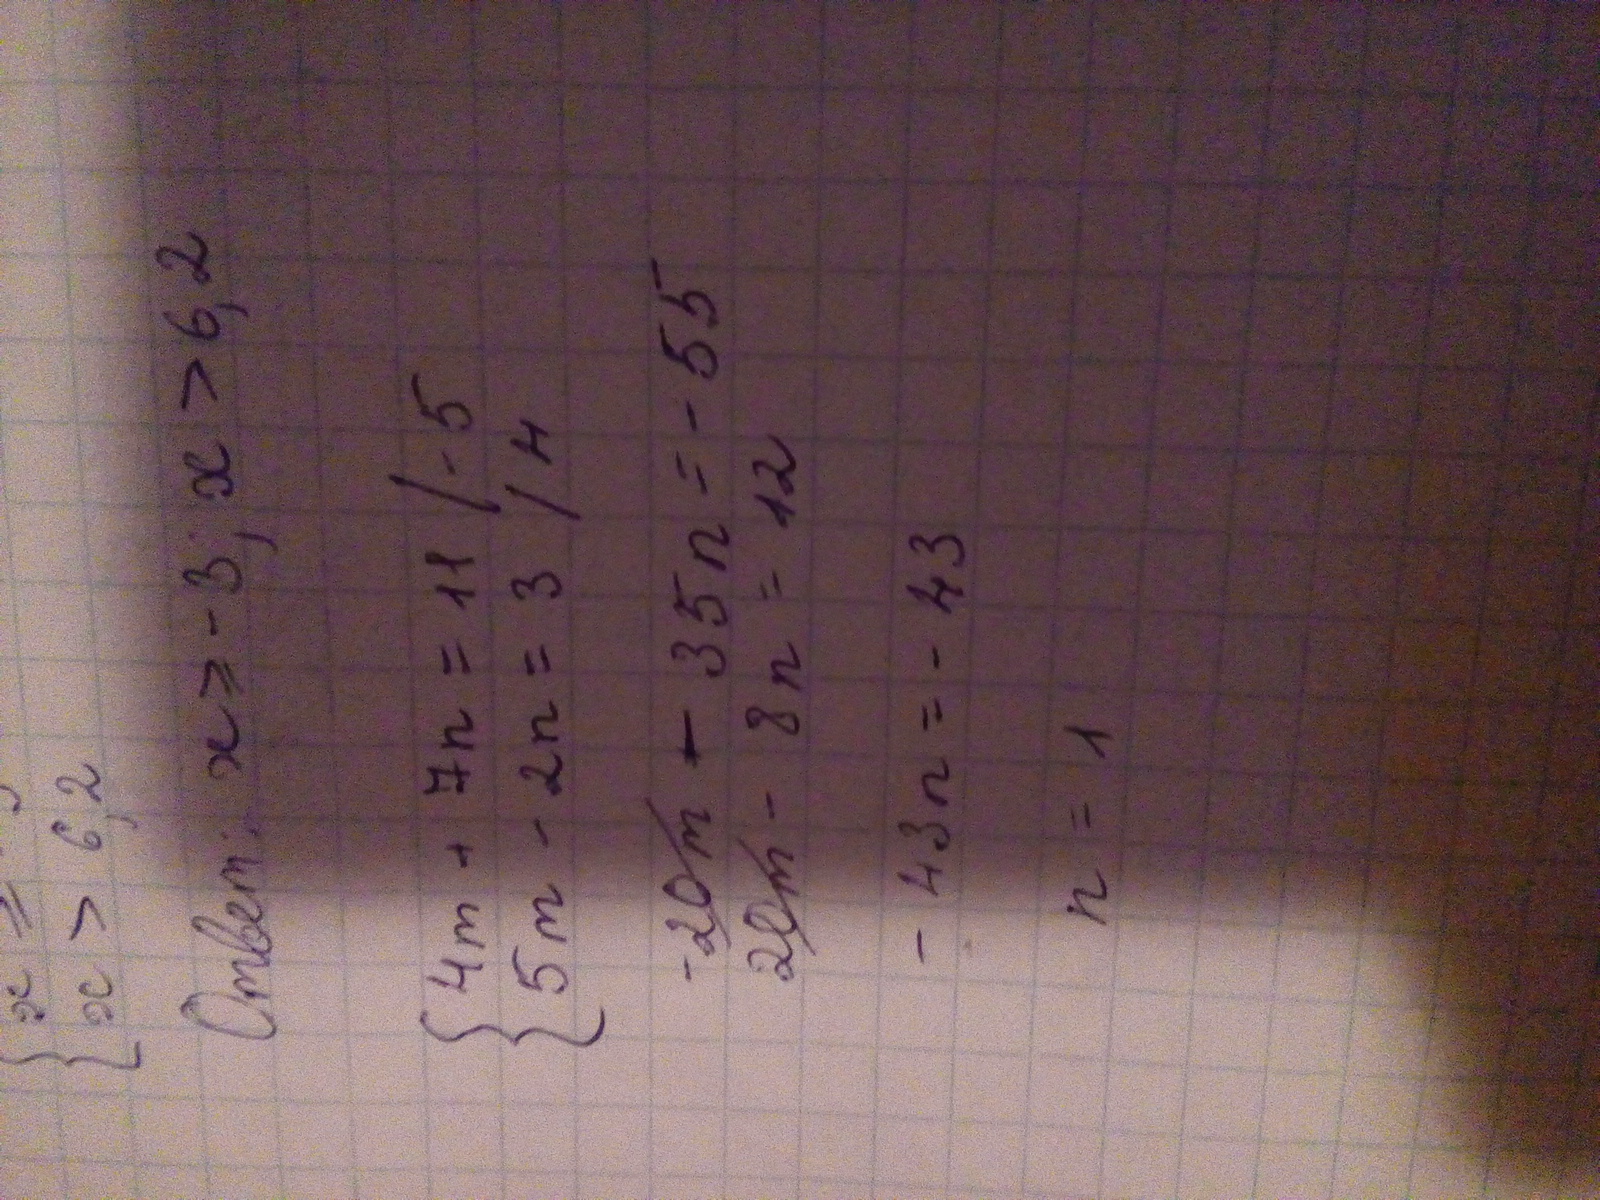 { x ≥
x > 6,2
Ответ: x ≥ -3; x > 6,2
{ 4m + 7n = 11 / -5
5m - 2n = 3 / 4
-20m - 35n = -55
20m - 8n = 12
- 43n = - 43
n = 1